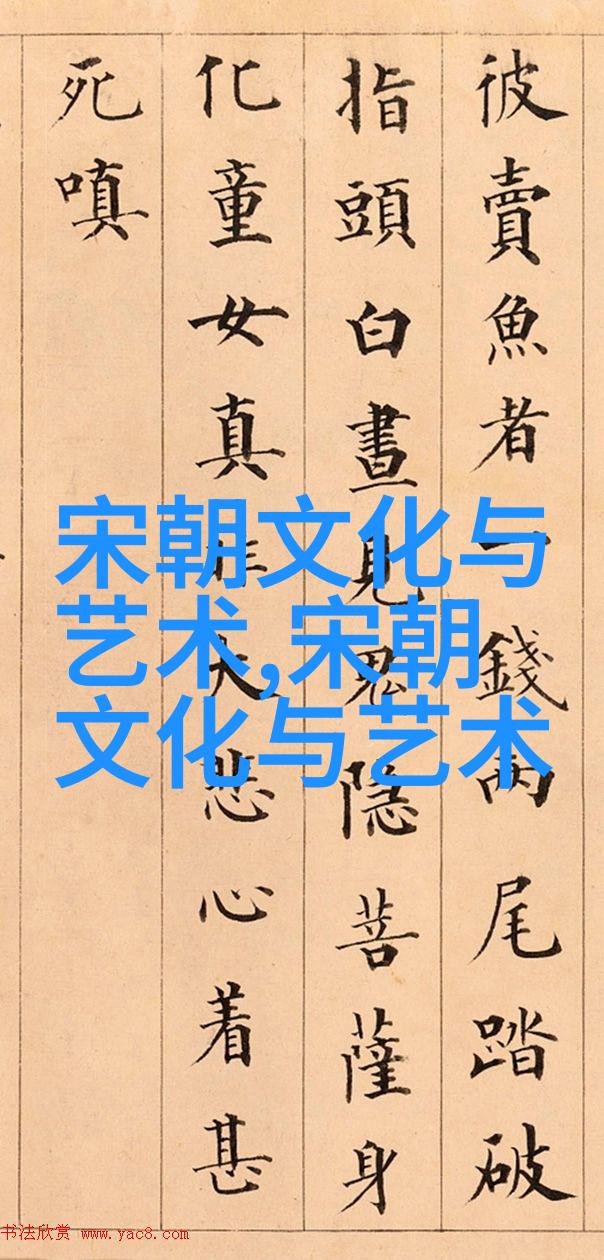 彼賣魚者一錢兩尾踏破
指頭白晝見鬼隱菩薩身
化童女真非大悲心着甚
死嗔
宋朝文化与
艺术,宋朝
文化与艺术
书法欣赏 www.yac8.com